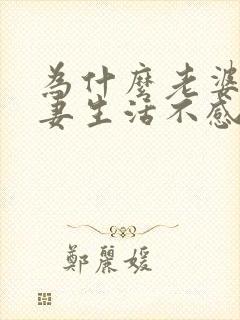 為什麼老婆
妻生活不感
鄭麗媛